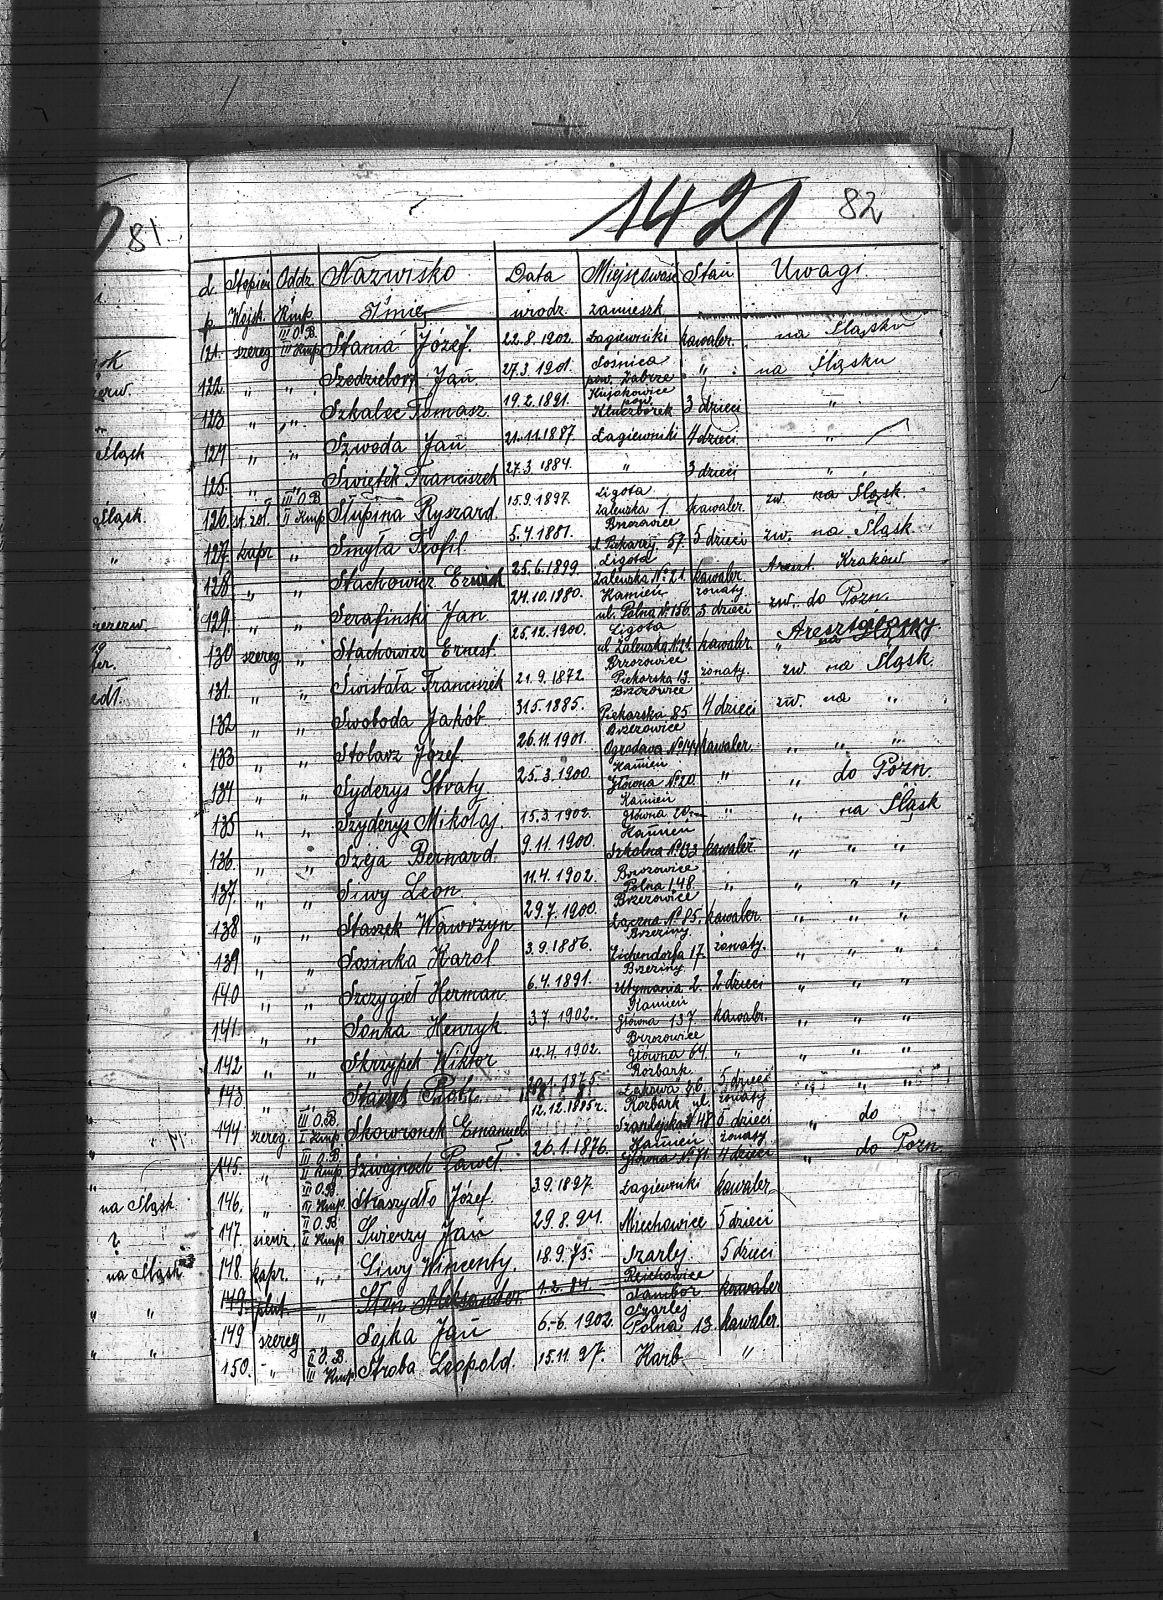 81.
1421 82
L. p. Stopień Wojsk. Oddz. Kmp. Nazwisko Imię Data urodz. Miejscowość zamieszk. Stan Uwagi
121. szereg III O.B. III Kmp. Stania Józef. 22.8.1902. Łagiewniki kawaler. na Śląsku
122. " " Jan 27.3.1901. Sośnica pow. Zabrze " na Śląsku
123 " " Szkalec Tomasz. 19.2.1891. Kujakowice pow. Kluczborek 3 dzieci "
124 " " Szwoda Jan 21.11.1887. Łagiewniki 4 dzieci "
125. " " Świętek Franciszek 27.3.1884. " 3 dzieci "
126. st. żoł III O.B. II Kmp Słupina Ryszard. 15.9.1897. Ligota Zalewska 1. kawaler. zw. na Śląsk.
127. kapr " Smyła Teofil. 5.4.1881. Brzozowice ul Piekarsk. 57. 5 dzieci zw. na Śląsk.
128. " " Stachowicz 25.6.1899. Ligota Zalewska Nr. 21. kawaler. Areszt. Kraków.
129. " " Serafinski Jan. 24.10.1880. Kamień ul. Polna Nr. 156. żonaty. 5 dzieci zw. do Pozn.
130 szereg " Stachowicz Ernest. 25.12.1900. Ligota ul. Zalewska Nr. 21. kawaler "
131. " " Świstała Franciszek 21.9.1872. Brzozowice Piekarska 13. żonaty. zw na Śląsk.
132 " " Swoboda Jakób 31.5.1885. Brzozowice Piekarska 85. 4 dzieci zw. na "
133 " " Stolarz Józef. 26.11.1901. Brzezowice Ogrodowa Nr. 14 kawaler. " " "
134 " " Syderys 25.3.1900. Kamień Główna Nr. 20. " " do Pozn.
135 " " Szyderys Mikołaj. 15.3.1902. Kamień Główna 20. " " na Śląsk
136. " " Szeja Bernard. 9.11.1900. Kamień Szkolna Nr. 133 kawaler. " " "
137. " " Siwy Leon 11.4.1902. Brzozowice Polna 148. " " " "
138 " " Staszek Wawrzyn 29.7.1900. Brzezowice Łączna Nr. 85. kawaler. " " "
139 " " Sosinka Karol 3.9.1886. Brzeziny. Eichendorfa 17. żonaty. " " "
140 " " Szczygieł Herman. 6.4.1891. Brzeziny. 2. 2 dzieci " " "
141. " " Sonka Henryk. 3.7.1902. Kamień Główna 137 kawaler. " " "
142 " " Skrzypek Wiktor 12.4.1902. Brzozowice Główna 64. " " " "
143 " 1875. Rozbark Łąkowa 56 5 dzieci " " "
144 szereg III O.B. I Kmp Skowronek Emanuel 12.12.1885 r. Rozbark ul. 48 żonaty 5 dzieci " do
145. " III O.B. II Kmp. Paweł. 26.1.1876. Kamień Główna Nr. 71. żonaty 4 dzieci " do Pozn.
146. " III O.B. III Kmp. Straszydło Józef. 3.9.1897. Łagiewniki kawaler.
147. sierż. II O.B. II Kmp. Świerzy Jan 29.8.94. Miechowice 5 dzieci
148. kapr. " Siwy Wincenty. 18.9.75. Szarlej 5 dzieci
149. plut. " Aleksander. 1.2.84. kawaler
149 szereg Sojka Jan 6.6.1902. Szarlej Polna 13. kawaler.
150. " II O.B. III Kmp Stroba Leopold. 15.11.97. Karb "
Śląsk
Śląsk.
na Śląsk.
?
na Śląsk